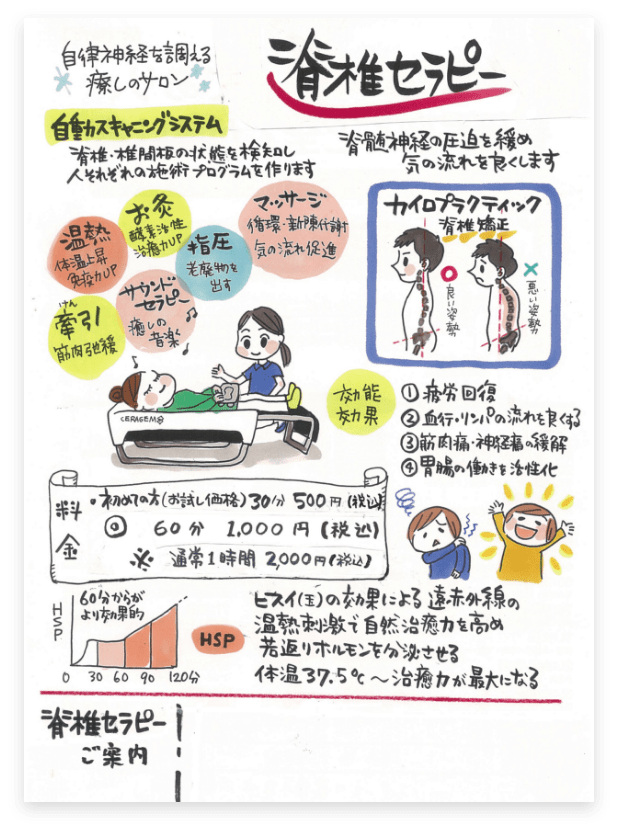 自律神経を調える
癒しのサロン
脊椎セラピー
自動スキャニングシステム
脊椎・椎間板の状態を検知し
人それぞれの施術プログラムを作ります
脊髄神経の圧迫を緩め
気の流れを良くします
温熱
体温上昇
免疫力UP
お灸
酵素活性
治癒力UP
指圧
老廃物を
出す
マッサージ
循環・新陳代謝
気の流れ促進
けん
牽引
筋肉弛緩
サウンド
セラピー
癒しの
音楽
カイロプラクティック
脊椎矯正
良い姿勢
悪い姿勢
CERAGEM
効能
効果
① 疲労回復
② 血行・リンパの流れを良くする
③ 筋肉痛・神経痛の緩解
④ 胃腸の働きを活性化
料金
・初めての方(お試し価格) 30分 500円(税込)
60分 1,000円(税込)
※ 通常1時間 2,000円(税込)
HSP
60分からが
より効果的
0 30 60 90 120分
HSP
ヒスイ(玉)の効果による遠赤外線の
温熱刺激で自然治癒力を高め
若返りホルモンを分泌させる
体温37.5℃〜治癒力が最大になる
脊椎セラピー
ご案内